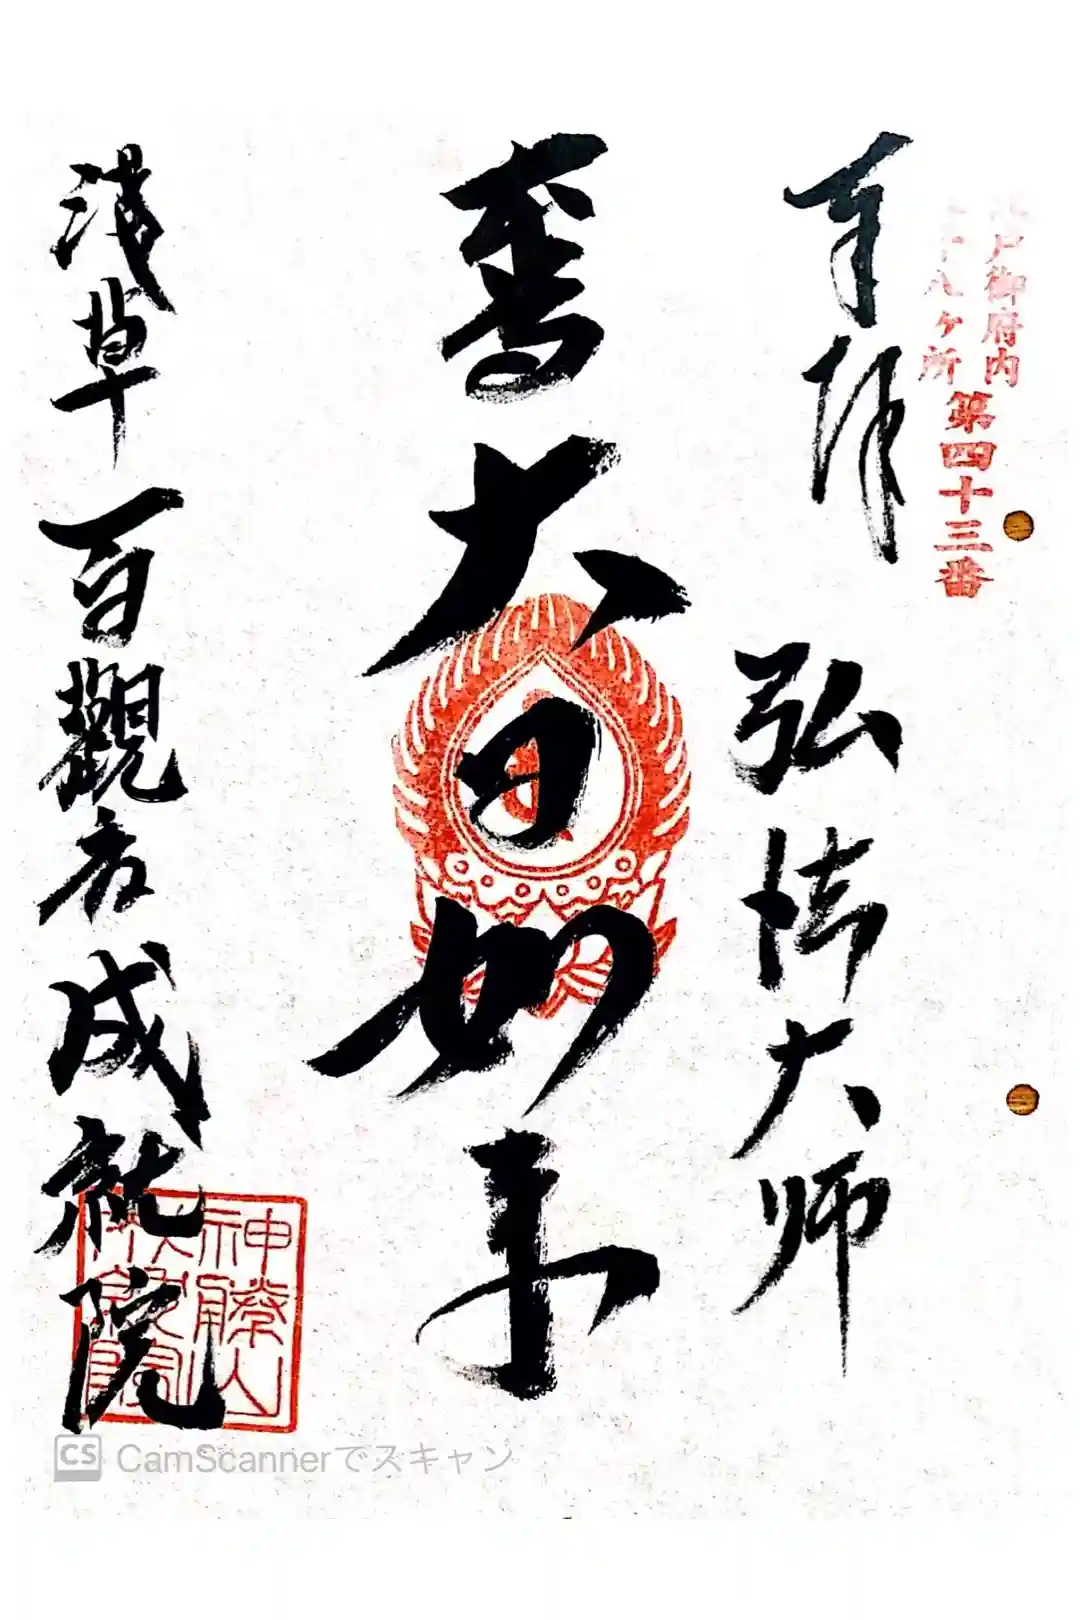 戸御府内
八ヶ所
第四十三番
奉拝
弘法大師
大日如来
浅草
百觀音
成就院
神勝山
成就院
CamScannerでスキャン